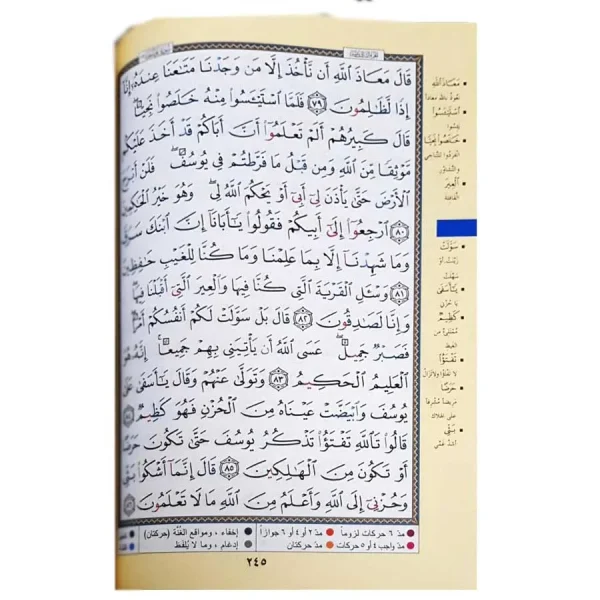 قَالَ مَعَاذَ ٱللَّهِ أَن نَّأْخُذَ إِلَّا مَن وَجَدْنَا مَتَـٰعَنَا عِندَهُۥٓ إِنَّآ
إِذًا لَّظَـٰلِمُونَ ٧٩ فَلَمَّا ٱسْتَيْـَٔسُوا۟ مِنْهُ خَلَصُوا۟ نَجِيًّا
قَالَ كَبِيرُهُمْ أَلَمْ تَعْلَمُوٓا۟ أَنَّ أَبَاكُمْ قَدْ أَخَذَ عَلَيْكُم
مَّوْثِقًا مِّنَ ٱللَّهِ وَمِن قَبْلُ مَا فَرَّطتُمْ فِى يُوسُفَ فَلَنْ أَبْرَحَ
ٱلْأَرْضَ حَتَّىٰ يَأْذَنَ لِىٓ أَبِىٓ أَوْ يَحْكُمَ ٱللَّهُ لِى وَهُوَ خَيْرُ ٱلْحَـٰكِمِينَ
٨٠ ٱرْجِعُوٓا۟ إِلَىٰٓ أَبِيكُمْ فَقُولُوا۟ يَـٰٓأَبَانَآ إِنَّ ٱبْنَكَ سَرَقَ
وَمَا شَهِدْنَآ إِلَّا بِمَا عَلِمْنَا وَمَا كُنَّا لِلْغَيْبِ حَـٰفِظِينَ
٨١ وَسْـَٔلِ ٱلْقَرْيَةَ ٱلَّتِى كُنَّا فِيهَا وَٱلْعِيرَ ٱلَّتِىٓ أَقْبَلْنَا فِيهَا
وَإِنَّا لَصَـٰدِقُونَ ٨٢ قَالَ بَلْ سَوَّلَتْ لَكُمْ أَنفُسُكُمْ أَمْرًا
فَصَبْرٌ جَمِيلٌ عَسَى ٱللَّهُ أَن يَأْتِيَنِى بِهِمْ جَمِيعًا إِنَّهُۥ هُوَ
ٱلْعَلِيمُ ٱلْحَكِيمُ ٨٣ وَتَوَلَّىٰ عَنْهُمْ وَقَالَ يَـٰٓأَسَفَىٰ عَلَىٰ
يُوسُفَ وَٱبْيَضَّتْ عَيْنَاهُ مِنَ ٱلْحُزْنِ فَهُوَ كَظِيمٌ
قَالُوا۟ تَٱللَّهِ تَفْتَؤُا۟ تَذْكُرُ يُوسُفَ حَتَّىٰ تَكُونَ حَرَضًا
أَوْ تَكُونَ مِنَ ٱلْهَـٰلِكِينَ ٨٥ قَالَ إِنَّمَآ أَشْكُوا۟ بَثِّى
وَحُزْنِىٓ إِلَى ٱللَّهِ وَأَعْلَمُ مِنَ ٱللَّهِ مَا لَا تَعْلَمُونَ
مَعَاذَ اللهِ
اسْتَيْئَسُوا
يئسوا
خَلَصُوا نَجِيًّا
انفردوا للتناجي
والتشاور
الْعِيرَ
القافلة
سَوَّلَتْ
زينت أو
سهلت
يَا أَسَفَى
يا حزني
كَظِيمٌ
ممتلئ من
الغيظ
تَفْتَؤُا
لا تفتأ ولا تزال
حَرَضًا
مريضا مشرفا
على الهلاك
بَثِّي
أشد غمي
مدّ ٦ حركات لزوماً مدّ ٢ أو ٤ أو ٦ جوازاً إخفاء ، ومواقع الغُنَّة (حركتان)
مدّ واجب ٤ أو ٥ حركات مدّ حركتان إدغام ، وما لا يُلفَظ
٢٤٥